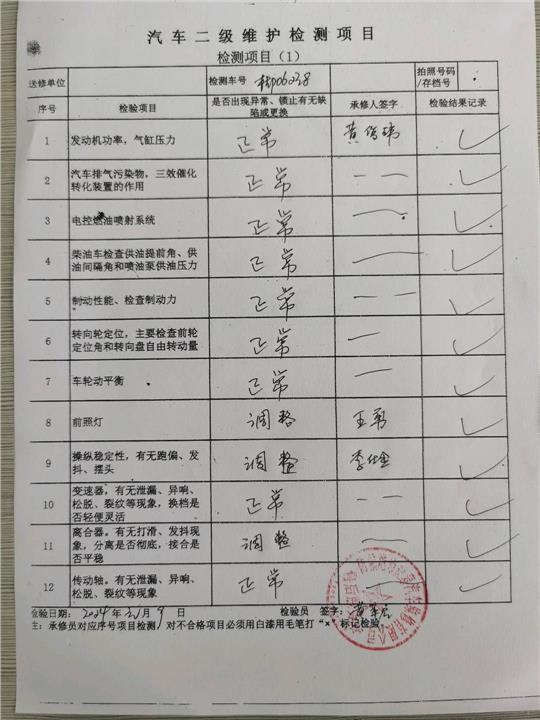 汽车二级维护检测项目
检测项目（1）
送修单位 检测车号 拍照号码/存档号
序号 检验项目 是否出现异常、锁止有无缺陷或更换 承修人签字 检验结果记录
1 发动机功率，气缸压力 正常 黄 ✓
2 汽车排气污染物，三效催化转化装置的作用 正常 一一 ✓
3 电控燃油喷射系统 正常 一一 ✓
4 柴油车检查供油提前角、供油间隔角和喷油泵供油压力 正常 一 ✓
5 制动性能、检查制动力 正常 一一 ✓
6 转向轮定位，主要检查前轮定位角和转向盘自由转动量 正常 一一 ✓
7 车轮动平衡 正常 一一 ✓
8 前照灯 调整 王勇 ✓
9 操纵稳定性，有无跑偏、发抖、摆头 调整 李仕金 ✓
10 变速器，有无泄漏、异响、松脱、裂纹等现象，换档是否轻便灵活 正常 一一 ✓
11 离合器。有无打滑、发抖现象，分离是否彻底，接合是否平稳 调整 一一 ✓
12 传动轴。有无泄漏、异响、松脱、裂纹等现象 正常 ✓
检验日期： 年 月 9 日 检验员 签字：
主：承修员对应序号项目检测，对不合格项目必须用白漆用毛笔打“×”标记检验。